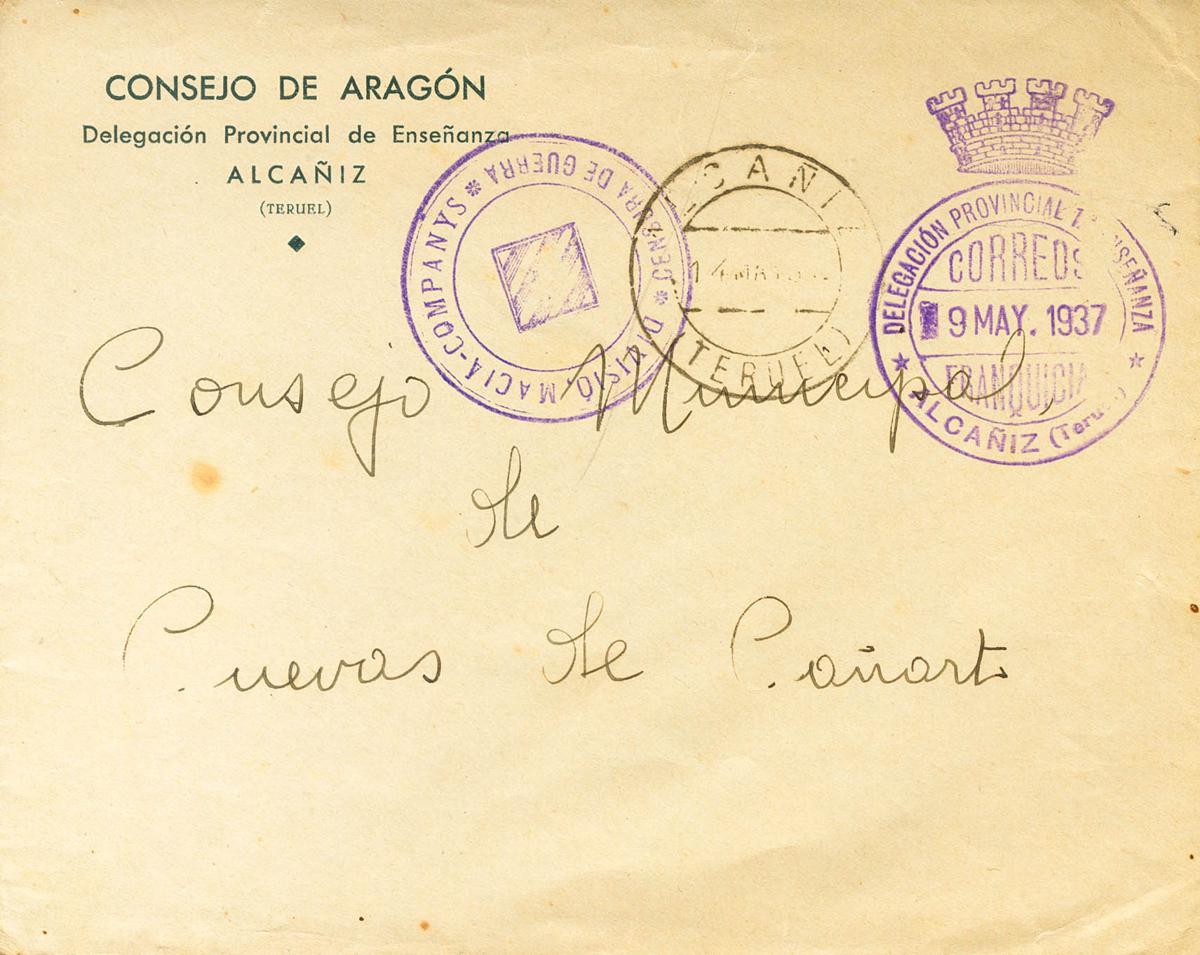 CONSEJO DE ARAGÓN
Delegación Provincial de Enseñanza
ALCAÑIZ
(TERUEL)
DIVISIÓ MACIÁ-COMPANYS * CENSURA DE GUERRA *
(TERUEL)
DELEGACIÓN PROVINCIAL
CORREOS
9 MAY. 1937
FRANQUICIA
ALCAÑIZ
Consejo Municipal,
de
Cuevas de Cañart